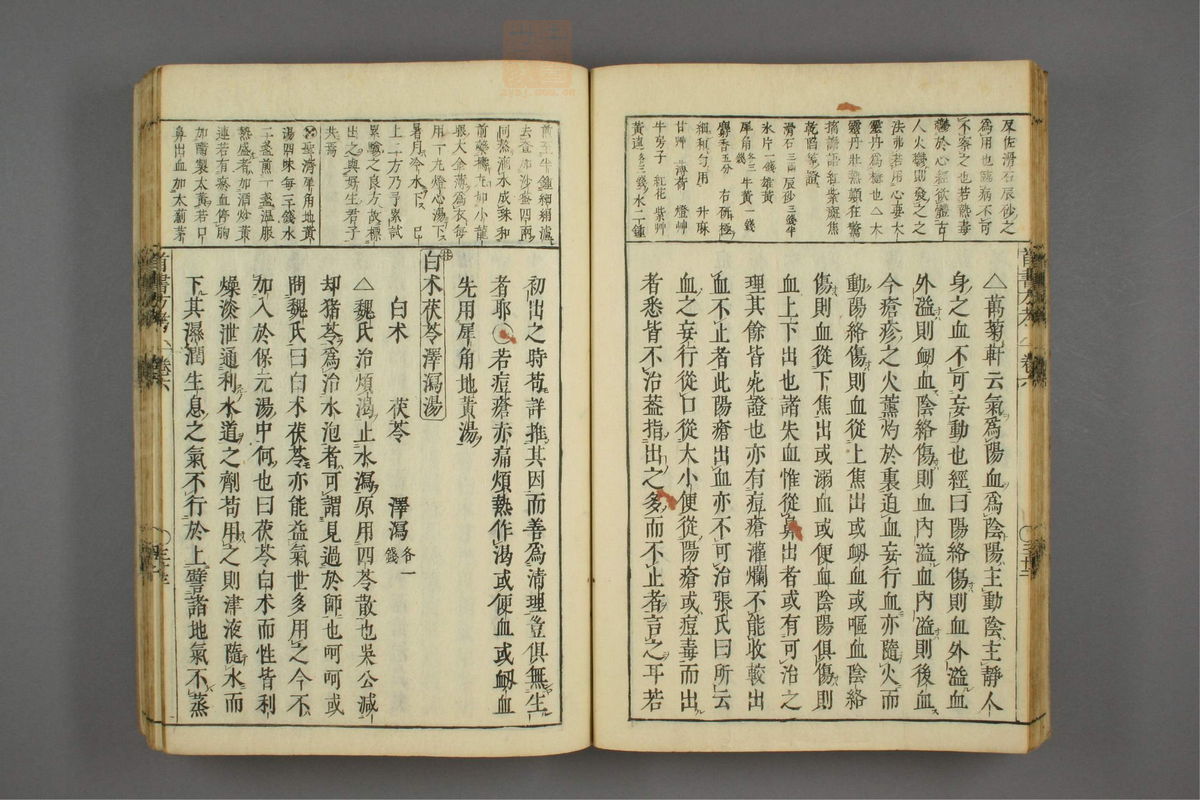 反佐滑石辰砂之
為用也臨病不可
不察之也若熱毒
鬱於心經欲體古
人火鬱則發之之
法弗若用心妻大
靈丹為極也△大
靈丹壯熱顛狂驚
搐譫語紅紫靨焦
乾陷等證
滑石三兩辰砂三錢半
氷片一錢雄黃
犀角各三錢牛黃一錢
麝香五分 右硏極
細和勻用 升麻
甘艸 薄荷 燈艸
牛房子 紅花 紫艸
黃連各三錢水二鍾
△萬菊軒云氣為陽血為陰陽主動陰主靜人
身之血不可妄動也經曰陽絡傷則血外溢血
外溢則衂血陰絡傷則血內溢血內溢則後血
今瘡疹之火薰灼於裏迫血妄行血亦隨火而
動陽絡傷則血從上焦出或衂血或嘔血陰絡
傷則血從下焦出或溺血或便血陰陽俱傷則
血上下出也諸失血惟從鼻出者或有可治之
理其餘皆死證也亦有痘瘡灌爛不能收較出
血不止者此陽瘡出血亦不可治張氏曰所云
血之妄行從口從大小便從陽瘡或痘毒而出
者悉皆不治葢指出之多而不止者言之耳若
煎至半鍾細絹濾
去渣加沙蜜四兩
同熬滴水成珠和
前藥擣丸如小龍
眼大金薄為衣每
用一丸燈心湯下
暑月冷水下 巳
上二方乃予累試
累驗之良方故標
出之與好生君子
共焉
聖濟犀角地黃
湯四味每三錢水
二盞煎一盞溫服
熱盛者加酒炒黃
連若有瘀血停胸
加酒製大黃若口
鼻出血加大薊茅
初出之時苟詳推其因而善為清理豈俱無生
者耶○若痘瘡亦痛煩熱作渴或便血或衂血
先用犀角地黃湯
白朮茯苓澤瀉湯
白朮 茯苓 澤瀉各一錢
△魏氏治煩渴止水瀉原用四苓散也吳公減
却猪苓為治水泡者可謂見過於師也呵呵或
問魏氏曰白朮茯苓亦能益氣世多用之今不
加入於保元湯中何也曰茯苓白朮而性皆利
燥淡泄通利水道之劑苟用之則津液隨水而
下其濕潤生息之氣不行於上譬諸地氣不蒸